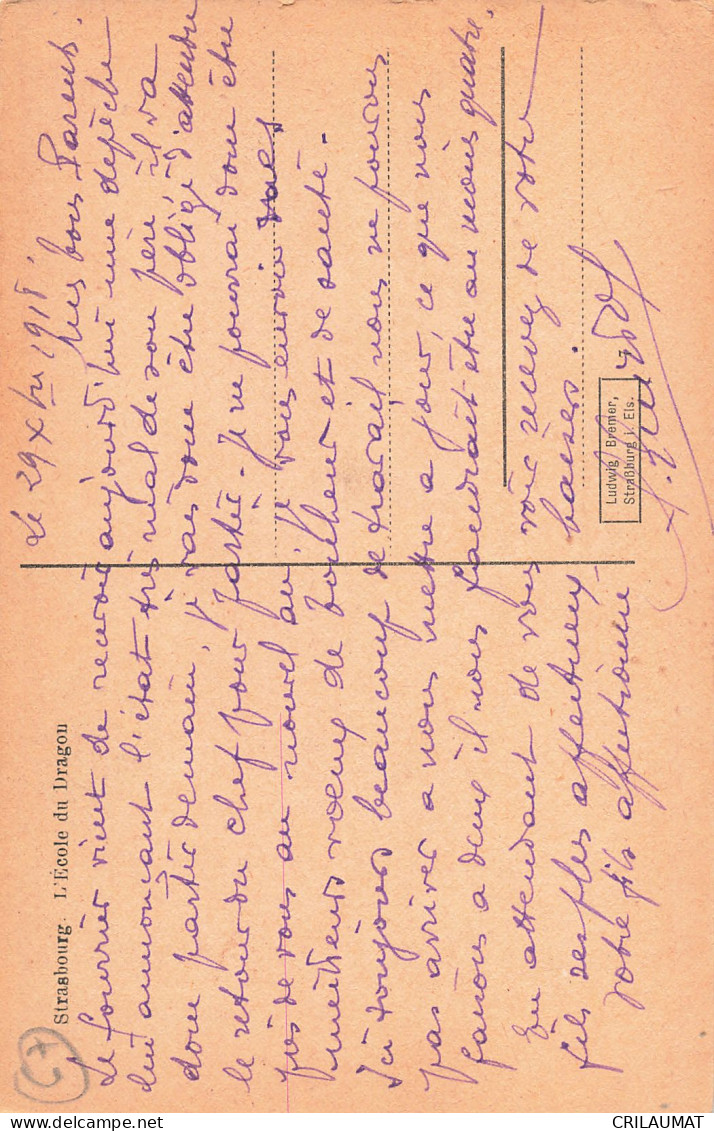 Strasbourg. L'École du Dragon
Le 29 Xbre 1918.
Mes bons Parents.
Le fourrier vient de recevoir aujourd'hui une dépêche
lui annoncant l'état très mal de son père, il va
donc partir demain, je vais donc être obligé d'attendre
le retour du chef pour partir. Je ne pourrai donc être
près de vous au nouvel an. Je vous envoie mes
meilleurs vœux de bonheur et de santé.
Ici toujours beaucoup de travail nous ne pouvons
pas arriver a nous mettre a jour, ce que nous
faisons a deux il nous faudrait être au moins quatre.
En attendant de vous voir recevez de votre
fils ses plus affectueux baisers.
Votre fils affectionné
Ludwig Bremer,
Straßburg i. Els.
67
CRILAUMAT